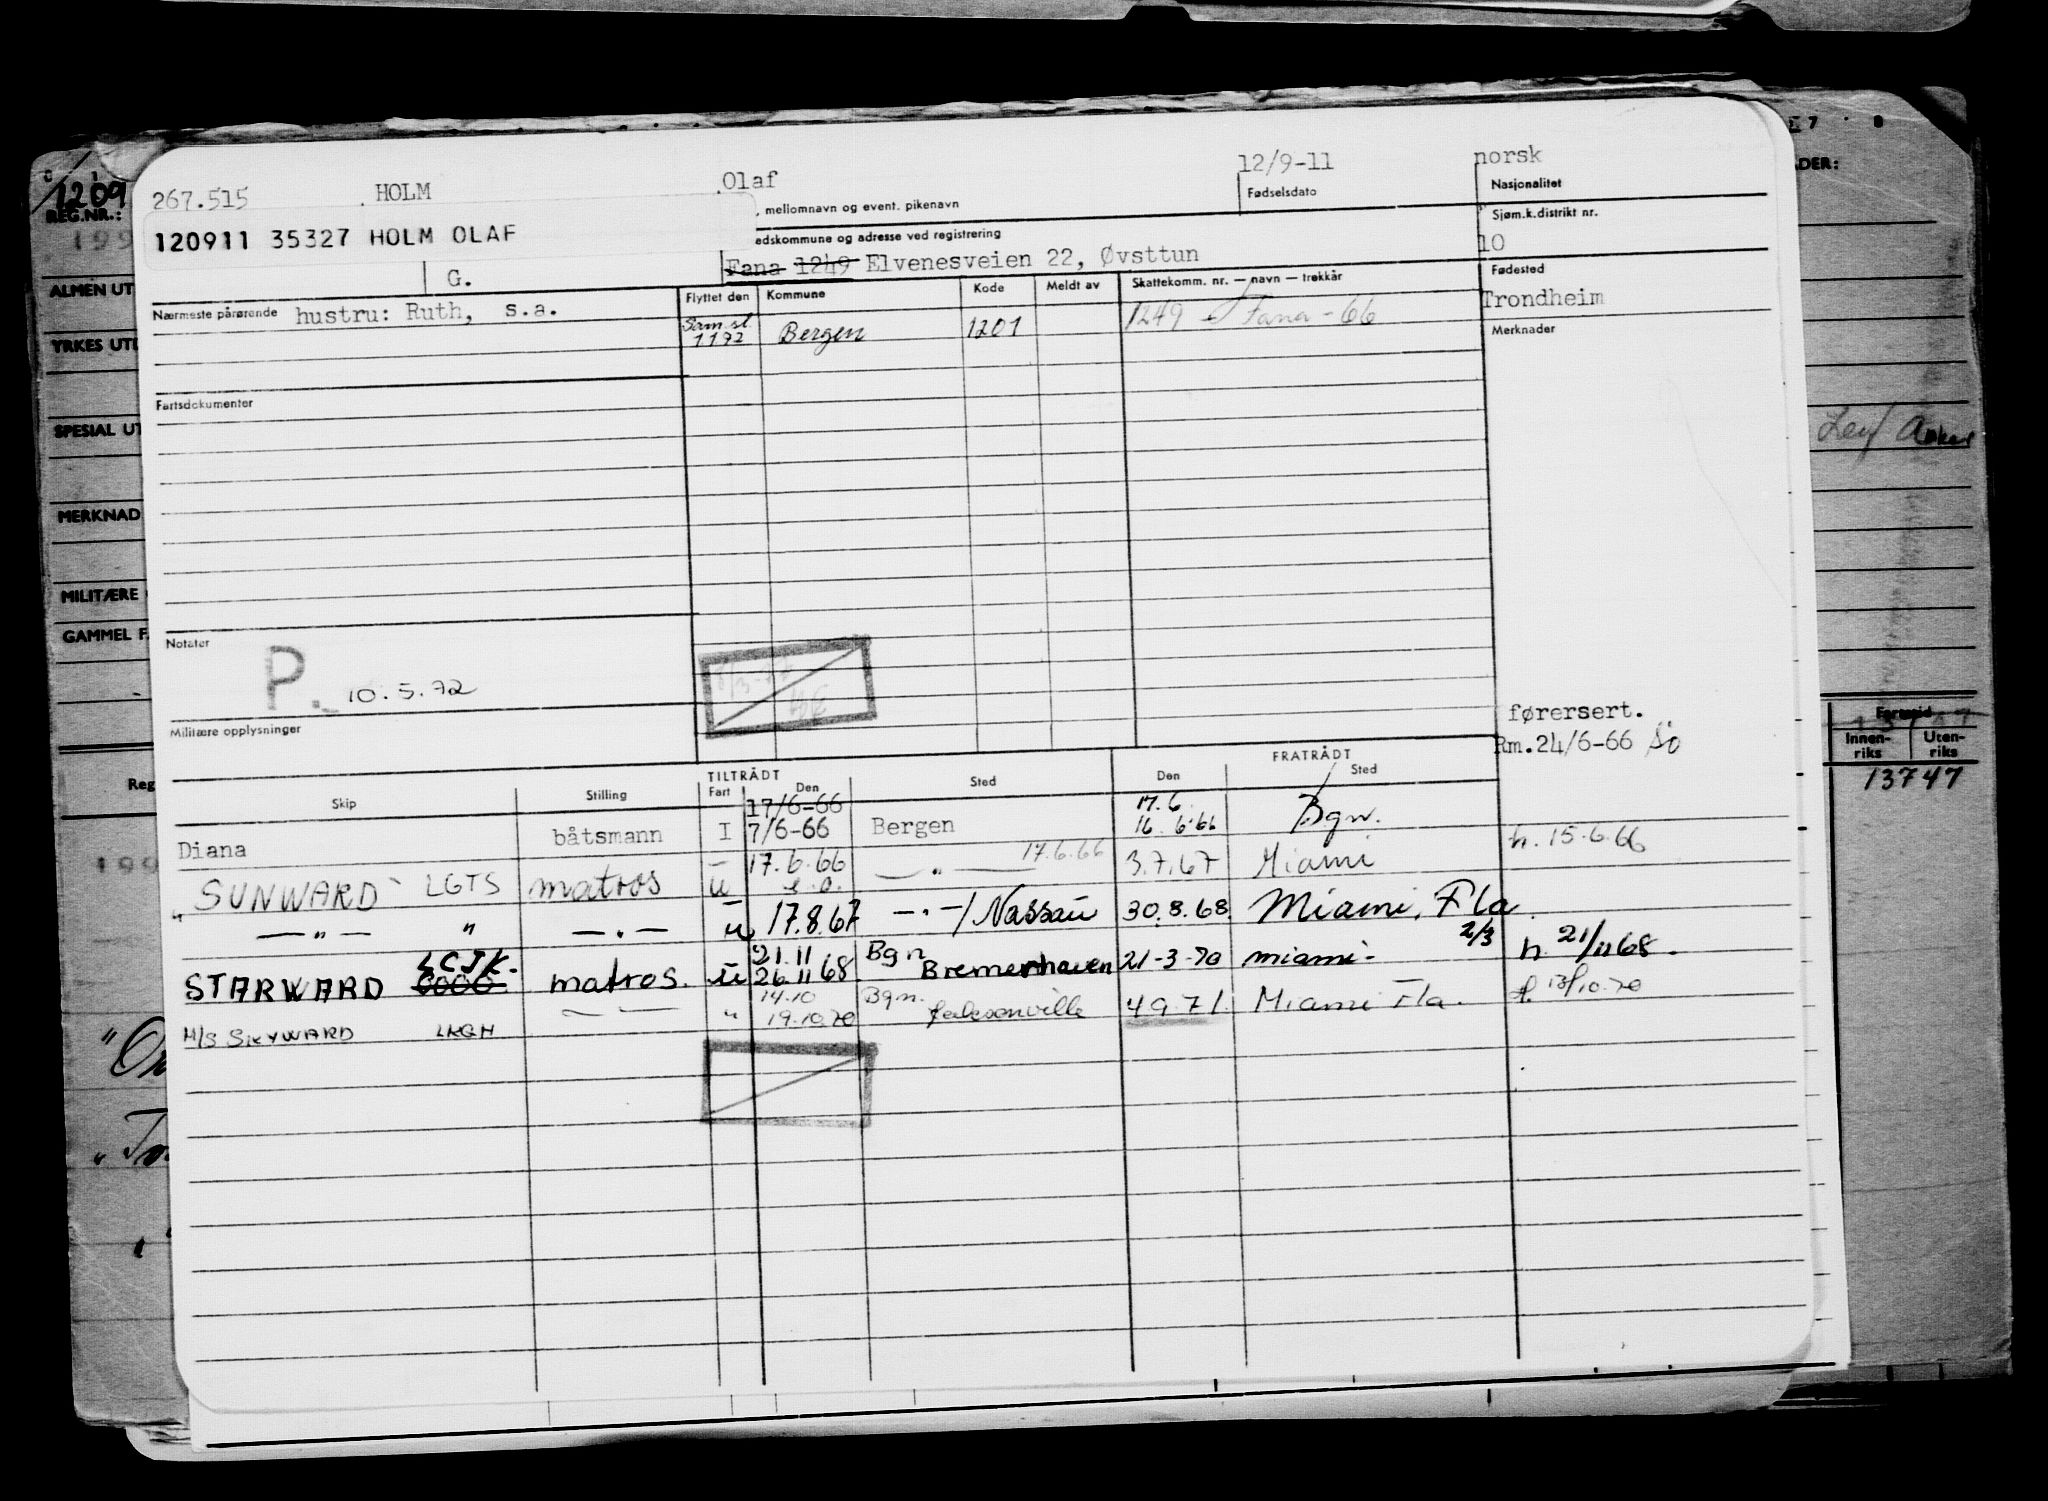 267.515 HOLM Olaf 12/9-11 norsk
, mellomnavn og event. pikenavn Fødselsdato Nasjonalitet
120911 35327 HOLM OLAF
edskommune og adresse ved registrering Sjøm.k.distrikt nr.
10
G. Fana 1249 Elvenesveien 22, Øvsttun
Nærmeste pårørende hustru: Ruth, s.a.
Flyttet den Kommune Kode Meldt av Skattekomm. nr. — navn — trekkår Fødested
Trondheim
Sam.sl. 1172 Bergen 1201 1249 Fana - 66
Merknader
Fartsdokumenter
Notater
P. 10.5.72
Militære opplysninger
førersert.
Rm.24/6-66
TILTRÅDT FRATRÅDT
Skip Stilling Fart Den Sted Den Sted
17/6-66 17.6
Diana båtsmann I 7/6-66 Bergen 16.6.66 Bgn. n. 15.6.66
17.6.66
"SUNWARD" LGTS matros u 17.6.66 — " — 3.7.67 Miami
s.d.
— " — " — " — u 17.8.67 — " —/Nassau 30.8.68 Miami, Fla.
2/3
LCJK. 21.11 Bgn
STARWARD matros. u 26.11 68 Bremerhaven 21-3-70 miami- n 21/11 68.
14.10 Bgn.
M/S SKYWARD LKGH — " — " 19.10.70 Jacksonville 4.9.71. Miami Fla. 13/10.70
1209
REG.NR.:
199
ALMEN UT
YRKES UTD
SPESIAL UT
MERKNAD
MILITÆRE
GAMMEL F.
Reg
199
"On
"To
E 7 8
DER:
Leif
Innen-
riks
Uten-
riks
13747